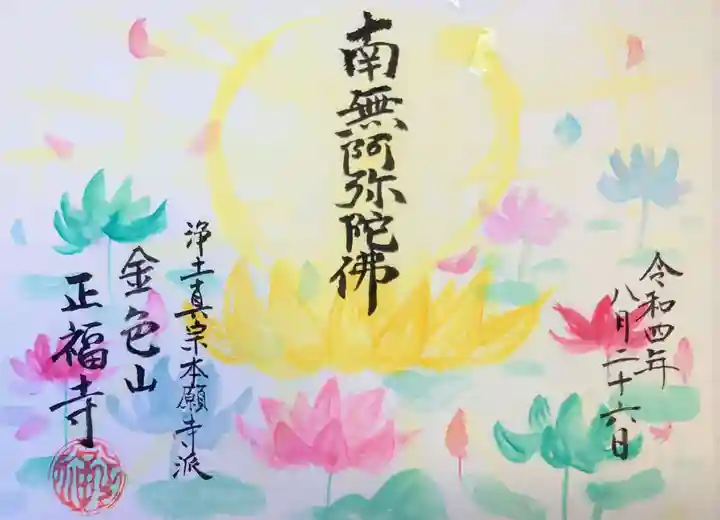 令和四年
八月二十六日
南無阿弥陀佛
浄土真宗本願寺派
金色山
正福寺